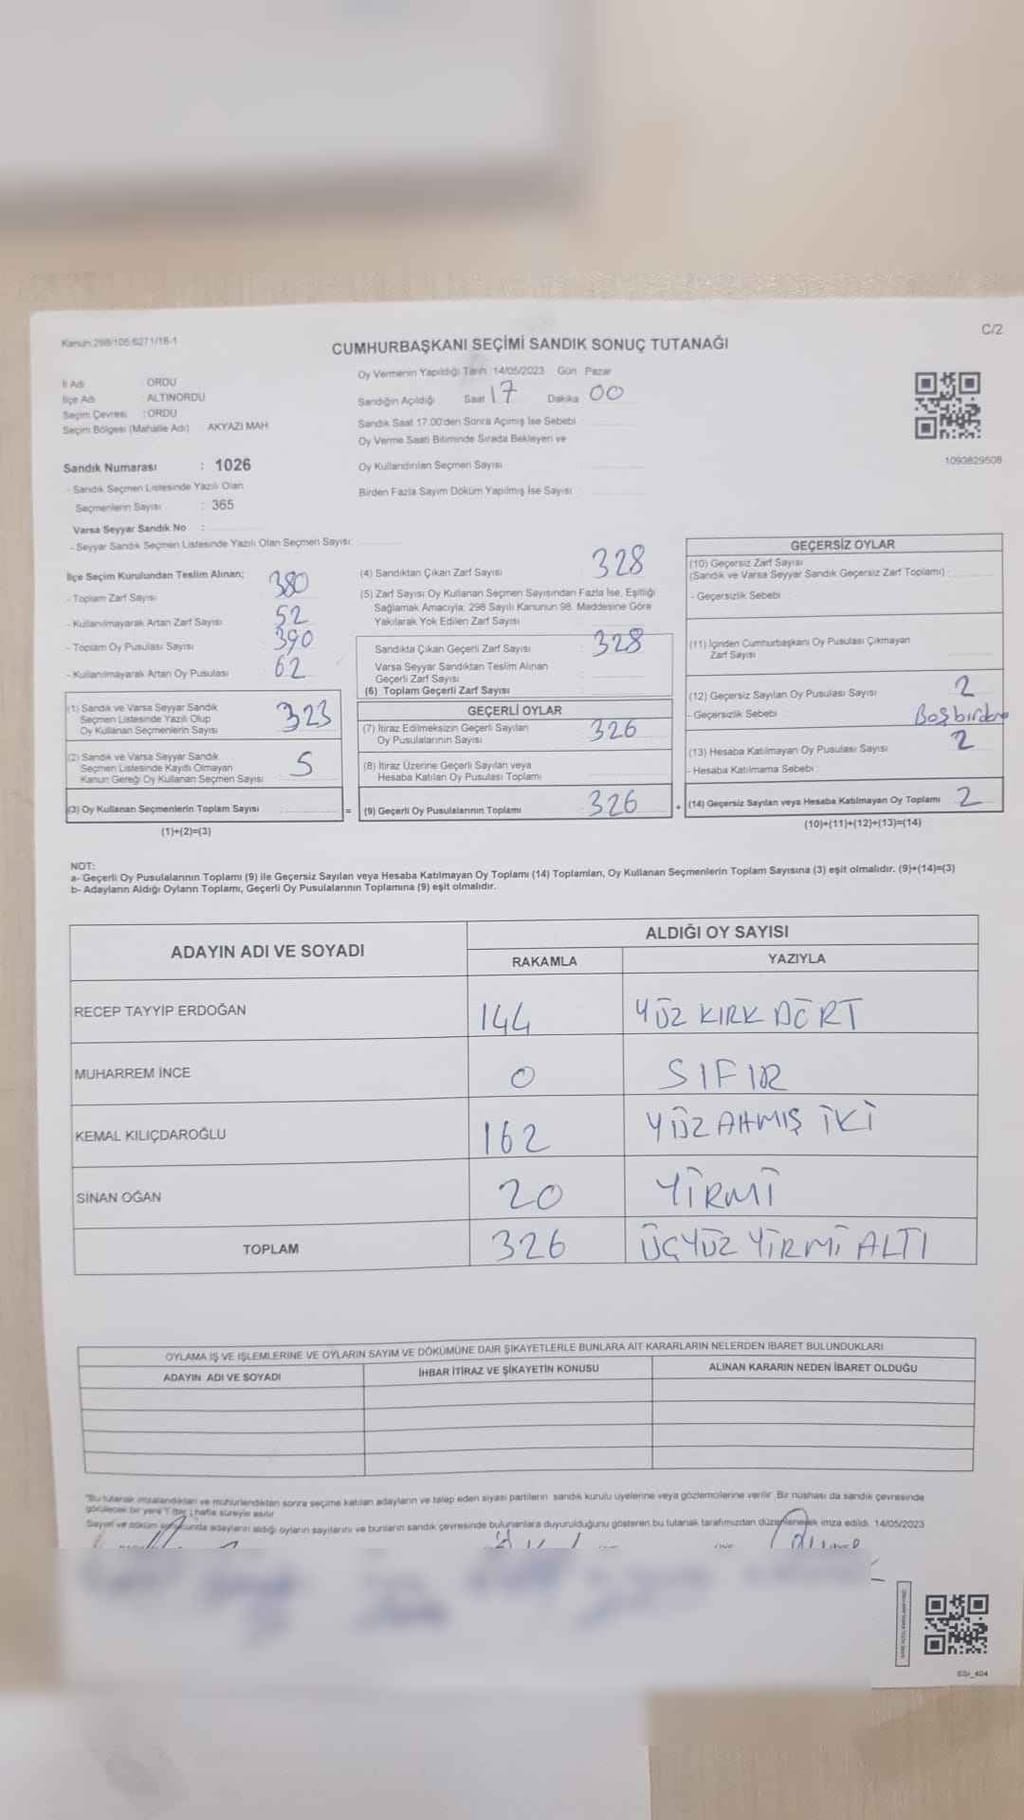 Kanun:298/105;6271/16-1
C/2
CUMHURBAŞKANI SEÇİMİ SANDIK SONUÇ TUTANAĞI
İl Adı : ORDU
İlçe Adı : ALTINORDU
Seçim Çevresi : ORDU
Seçim Bölgesi (Mahalle Adı) AKYAZI MAH
Sandık Numarası : 1026
- Sandık Seçmen Listesinde Yazılı Olan
Seçmenlerin Sayısı : 365
Varsa Seyyar Sandık No :
- Seyyar Sandık Seçmen Listesinde Yazılı Olan Seçmen Sayısı:
Oy Vermenin Yapıldığı Tarih: 14/05/2023 Gün Pazar
Sandığın Açıldığı Saat 17 Dakika 00
Sandık Saat 17.00'den Sonra Açımış İse Sebebi
Oy Verme Saati Bitiminde Sırada Bekleyen ve
Oy Kullandırılan Seçmen Sayısı
Birden Fazla Sayım Döküm Yapılmış İse Sayısı
1093829508
İlçe Seçim Kurulundan Teslim Alınan;
- Toplam Zarf Sayısı 380
- Kullanılmayarak Artan Zarf Sayısı 52
- Toplam Oy Pusulası Sayısı 390
- Kullanılmayarak Artan Oy Pusulası 62
(1) Sandık ve Varsa Seyyar Sandık
Seçmen Listesinde Yazılı Olup
Oy Kullanan Seçmenlerin Sayısı 323
(2) Sandık ve Varsa Seyyar Sandık
Seçmen Listesinde Kayıtlı Olmayan
Kanun Gereği Oy Kullanan Seçmen Sayısı 5
(3) Oy Kullanan Seçmenlerin Toplam Sayısı =
(1)+(2)=(3)
(4) Sandıktan Çıkan Zarf Sayısı 328
(5) Zarf Sayısı Oy Kullanan Seçmen Sayısından Fazla İse, Eşitliği
Sağlamak Amacıyla; 298 Sayılı Kanunun 98. Maddesine Göre
Yakılarak Yok Edilen Zarf Sayısı
Sandıkta Çıkan Geçerli Zarf Sayısı 328
Varsa Seyyar Sandıktan Teslim Alınan
Geçerli Zarf Sayısı
(6) Toplam Geçerli Zarf Sayısı
GEÇERLİ OYLAR
(7) İtiraz Edilmeksizin Geçerli Sayılan
Oy Pusulalarının Sayısı 326
(8) İtiraz Üzerine Geçerli Sayılan veya
Hesaba Katılan Oy Pusulası Toplamı
(9) Geçerli Oy Pusulalarının Toplamı 326 +
GEÇERSİZ OYLAR
(10) Geçersiz Zarf Sayısı
(Sandık ve Varsa Seyyar Sandık Geçersiz Zarf Toplamı)
- Geçersizlik Sebebi
(11) İçinden Cumhurbaşkanı Oy Pusulası Çıkmayan
Zarf Sayısı
(12) Geçersiz Sayılan Oy Pusulası Sayısı 2
- Geçersizlik Sebebi
(13) Hesaba Katılmayan Oy Pusulası Sayısı 2
- Hesaba Katılmama Sebebi
(14) Geçersiz Sayılan veya Hesaba Katılmayan Oy Toplamı 2
(10)+(11)+(12)+(13)=(14)
NOT:
a- Geçerli Oy Pusulalarının Toplamı (9) ile Geçersiz Sayılan veya Hesaba Katılmayan Oy Toplamı (14) Toplamları, Oy Kullanan Seçmenlerin Toplam Sayısına (3) eşit olmalıdır. (9)+(14)=(3)
b- Adayların Aldığı Oyların Toplamı, Geçerli Oy Pusulalarının Toplamına (9) eşit olmalıdır.
ADAYIN ADI VE SOYADI
ALDIĞI OY SAYISI
RAKAMLA YAZIYLA
RECEP TAYYİP ERDOĞAN 144 YÜZ KIRK DÖRT
MUHARREM İNCE 0 SIFIR
KEMAL KILIÇDAROĞLU 162 YÜZ ATMIŞ İKİ
SİNAN OĞAN 20 YİRMİ
TOPLAM 326 ÜÇYÜZ YİRMİ ALTI
OYLAMA İŞ VE İŞLEMLERİNE VE OYLARIN SAYIM VE DÖKÜMÜNE DAİR ŞİKAYETLERLE BUNLARA AİT KARARLARIN NELERDEN İBARET BULUNDUKLARI
ADAYIN ADI VE SOYADI İHBAR İTİRAZ VE ŞİKAYETİN KONUSU ALINAN KARARIN NEDEN İBARET OLDUĞU
"Bu tutanak imzalandıktan ve mühürlendikten sonra seçime katılan adayların ve talep eden siyasi partilerin sandık kurulu üyelerine veya gözlemcilerine verilir. Bir nüshası da sandık çevresinde
görülecek bir yere hafta süreyle asılır
Sayım ve döküm sonucunda adayların aldığı oyların sayılarını ve bunların sandık çevresinde bulunanlara duyurulduğunu gösteren bu tutanak tarafımızdan düzenlenerek imza edildi. 14/05/2023